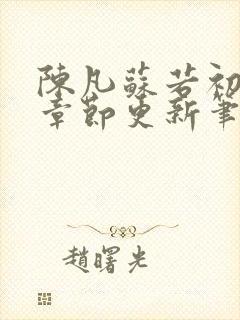 陳凡蘇若初
章節更新筆
趙曙光